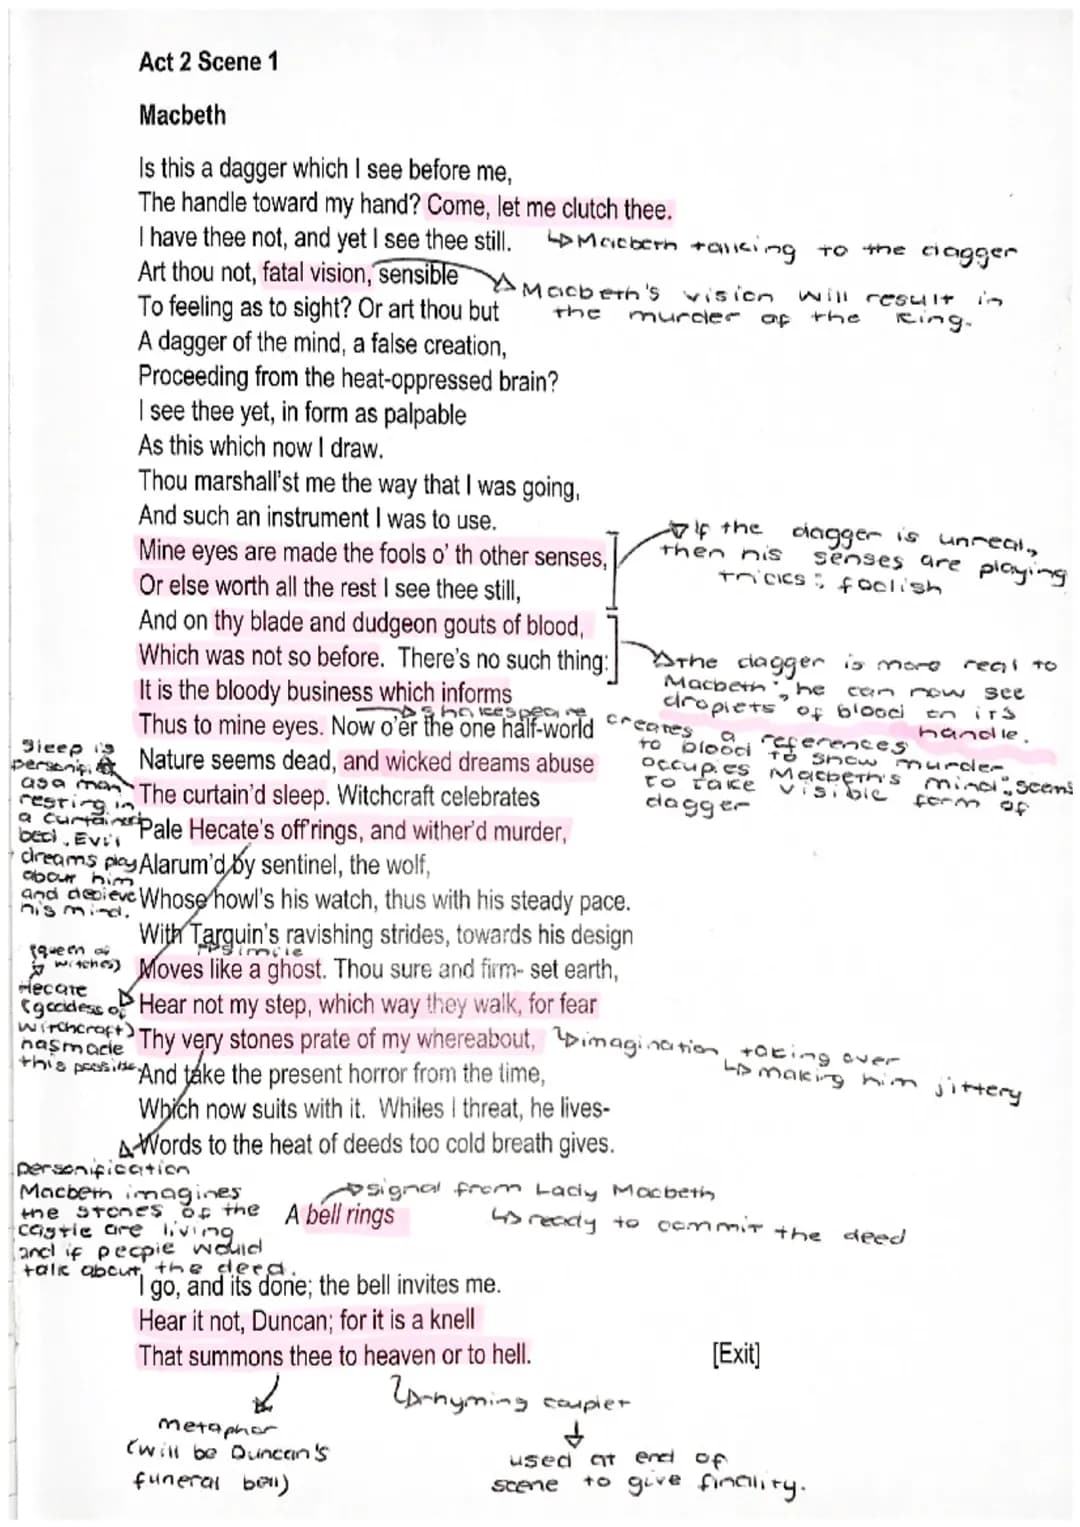 Act 2 Scene 1
Macbeth
Is this a dagger which I see before me,
The handle toward my hand? Come, let me clutch thee.
I have thee not, and yet I see thee still.
↳Macbeth talking to the dagger
Art thou not, fatal vision, sensible
Macbeth's vision will result in
the murder of the King.
To feeling as to sight? Or art thou but
A dagger of the mind, a false creation,
Proceeding from the heat-oppressed brain?
I see thee yet, in form as palpable
As this which now I draw.
Thou marshall'st me the way that I was going,
And such an instrument I was to use.
Mine eyes are made the fools o' th other senses,
Or else worth all the rest I see thee still,
If the dagger is unreal,
then his senses are playing
tricks : foolish
And on thy blade and dudgeon gouts of blood,
Which was not so before. There's no such thing:
the dagger is more real to
Macbeth; he can now see
droplets of blood on its
handle.
It is the bloody business which informs
Thus to mine eyes. Now o'er the one half-world
Shakespeare
creates a references
to blood to show murder
occupies Macbeth's mind; seems
to take visible form of
dagger
Nature seems dead, and wicked dreams abuse
The curtain'd sleep. Witchcraft celebrates
Sleep is
personif.
as a man
resting in
a curtained
bed. Evil
dreams play
about him
and decieve
his mind.
Pale Hecate's off'rings, and wither'd murder,
Alarum'd by sentinel, the wolf,
Whose howl's his watch, thus with his steady pace.
With Tarquin's ravishing strides, towards his design
simile
Moves like a ghost. Thou sure and firm- set earth,
Hear not my step, which way they walk, for fear
(queen of
witches)
Hecate
(goddess of
witchcraft)
has made
this possible
Thy very stones prate of my whereabout,
↳imagination taking over
↳making him jittery
And take the present horror from the time,
Which now suits with it. Whiles I threat, he lives-
Words to the heat of deeds too cold breath gives.
personification
Macbeth imagines
the stones of the
castle are living
and if people would
talk about the deed.
signal from Lady Macbeth
A bell rings
↳ready to commit the deed
I go, and its done; the bell invites me.
Hear it not, Duncan; for it is a knell
That summons thee to heaven or to hell.
[Exit]
metaphor
(will be Duncan's
funeral bell)
rhyming couplet
used at end of
scene to give finality.